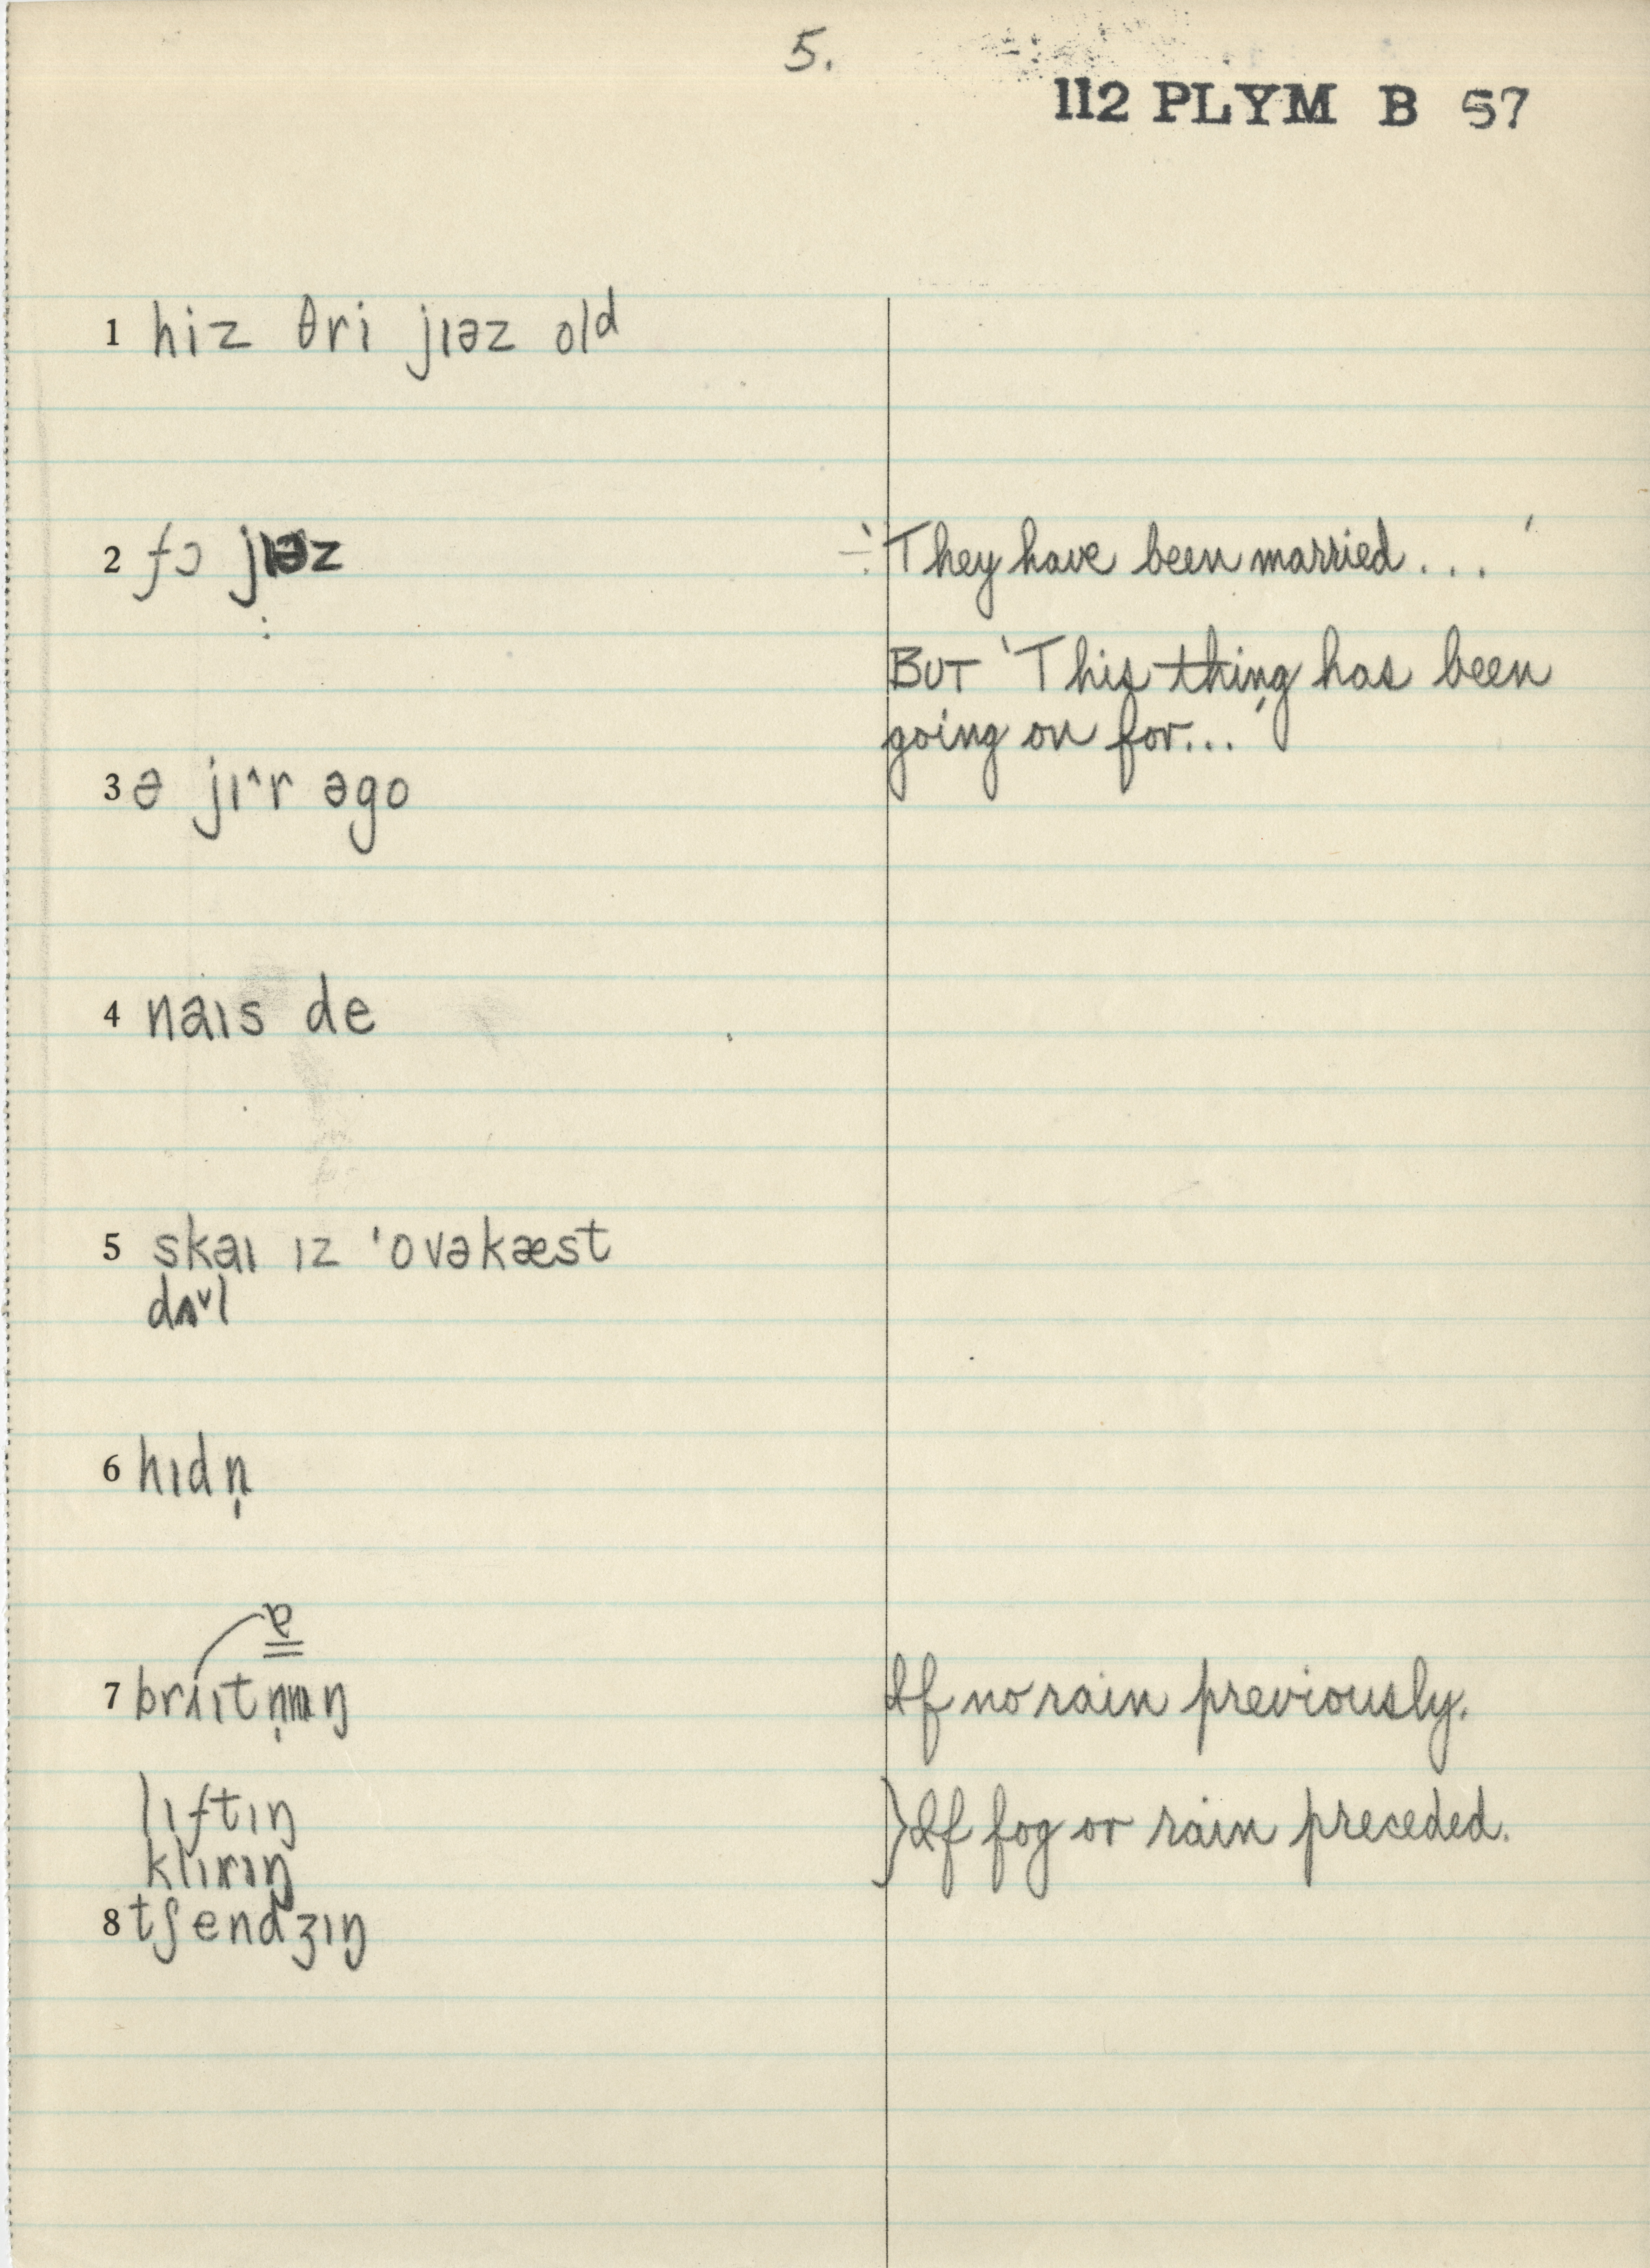 5.
112 PLYM B 57
1 hiz θri jɪəz old
2 fɔ jɪəz
÷ 'They have been married . . . '
BUT 'This thing has been
going on for...'
3 ə jɪ^r əgo
4 naɪs de
5 skaɪ ɪz 'ovəkæst
dʌ˅l
6 hɪdn̩
ɐ
7 brʌɪtn̩ɪŋ
If no rain previously.
lɪftɪŋ
} If fog or rain preceded.
klɪrɪŋ
8 tʃendʒɪŋ